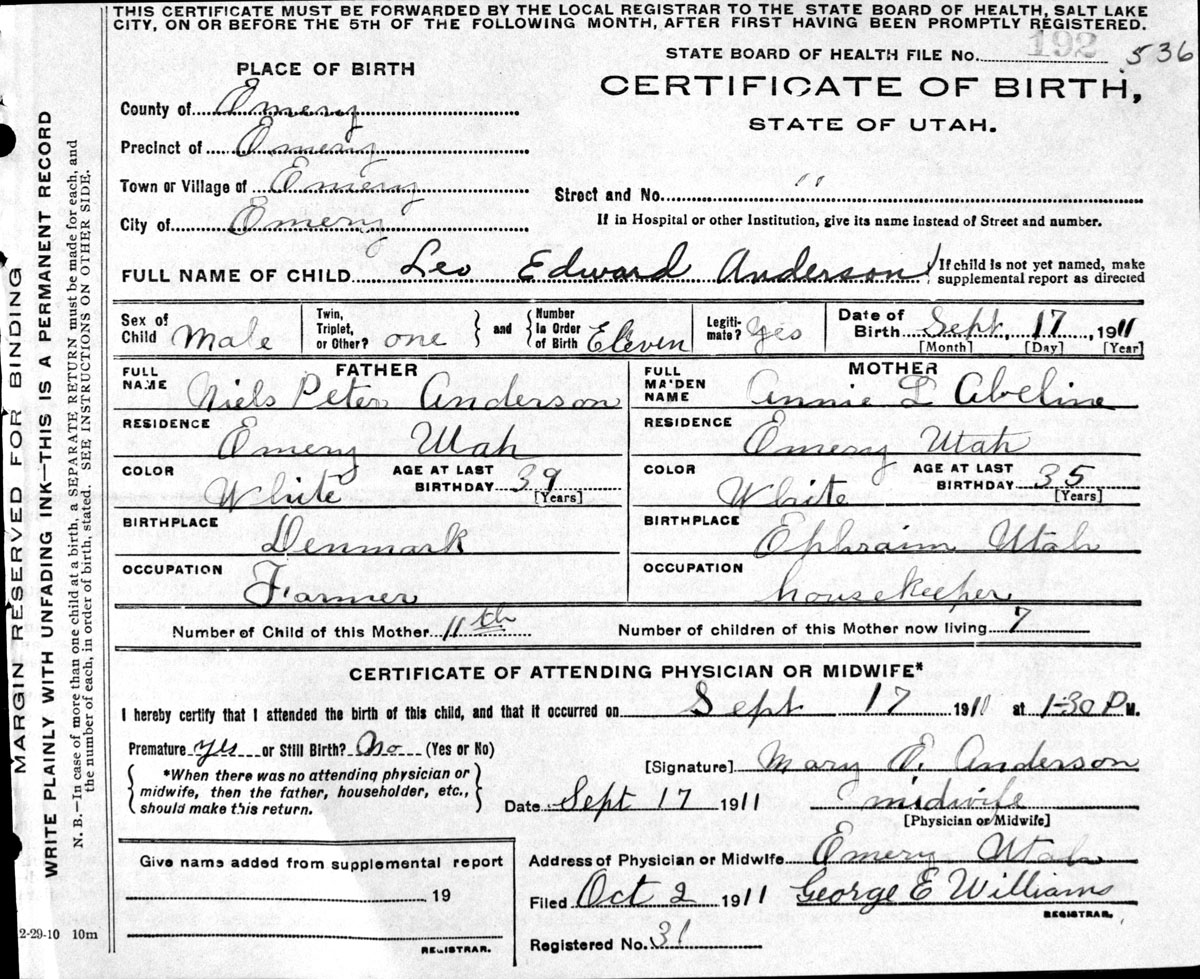 THIS CERTIFICATE MUST BE FORWARDED BY THE LOCAL REGISTRAR TO THE STATE BOARD OF HEALTH, SALT LAKE
CITY, ON OR BEFORE THE 5TH OF THE FOLLOWING MONTH, AFTER FIRST HAVING BEEN PROMPTLY REGISTERED.
STATE BOARD OF HEALTH FILE No. 192 536
PLACE OF BIRTH
CERTIFICATE OF BIRTH,
STATE OF UTAH.
County of Emery
Precinct of Emery
Town or Village of Emery
Street and No. "
City of Emery
If in Hospital or other Institution, give its name instead of Street and number.
FULL NAME OF CHILD Leo Edward Anderson { If child is not yet named, make
supplemental report as directed
Sex of Child Male
Twin, Triplet, or Other? one } and { Number In Order of Birth Eleven
Legiti-mate? Yes
Date of Birth Sept. 17, 1911
[Month] [Day] [Year]
FATHER
FULL NAME Niels Peter Anderson
RESIDENCE Emery Utah
COLOR White AGE AT LAST BIRTHDAY 39
[Years]
BIRTHPLACE Denmark
OCCUPATION Farmer
MOTHER
FULL MAIDEN NAME Annie L Abeline
RESIDENCE Emery Utah
COLOR White AGE AT LAST BIRTHDAY 35
[Years]
BIRTHPLACE Ephraim Utah
OCCUPATION housekeeper
Number of Child of this Mother 11th Number of children of this Mother now living 7
CERTIFICATE OF ATTENDING PHYSICIAN OR MIDWIFE*
I hereby certify that I attended the birth of this child, and that it occurred on Sept 17 1911 at 1-30 P M.
Premature yes or Still Birth? No (Yes or No)
{ *When there was no attending physician or
midwife, then the father, householder, etc.,
should make this return. }
[Signature] Mary E. Anderson
Date Sept 17 1911 midwife
[Physician or Midwife]
Give name added from supplemental report
19
REGISTRAR.
Address of Physician or Midwife Emery Utah
Filed Oct 2 1911 George E Williams
REGISTRAR.
Registered No. 31
2-29-10 10m
MARGIN RESERVED FOR BINDING
WRITE PLAINLY WITH UNFADING INK—THIS IS A PERMANENT RECORD
N. B.—In case of more than one child at a birth, a SEPARATE RETURN must be made for each, and
the number of each, in order of birth, stated. SEE INSTRUCTIONS ON OTHER SIDE.